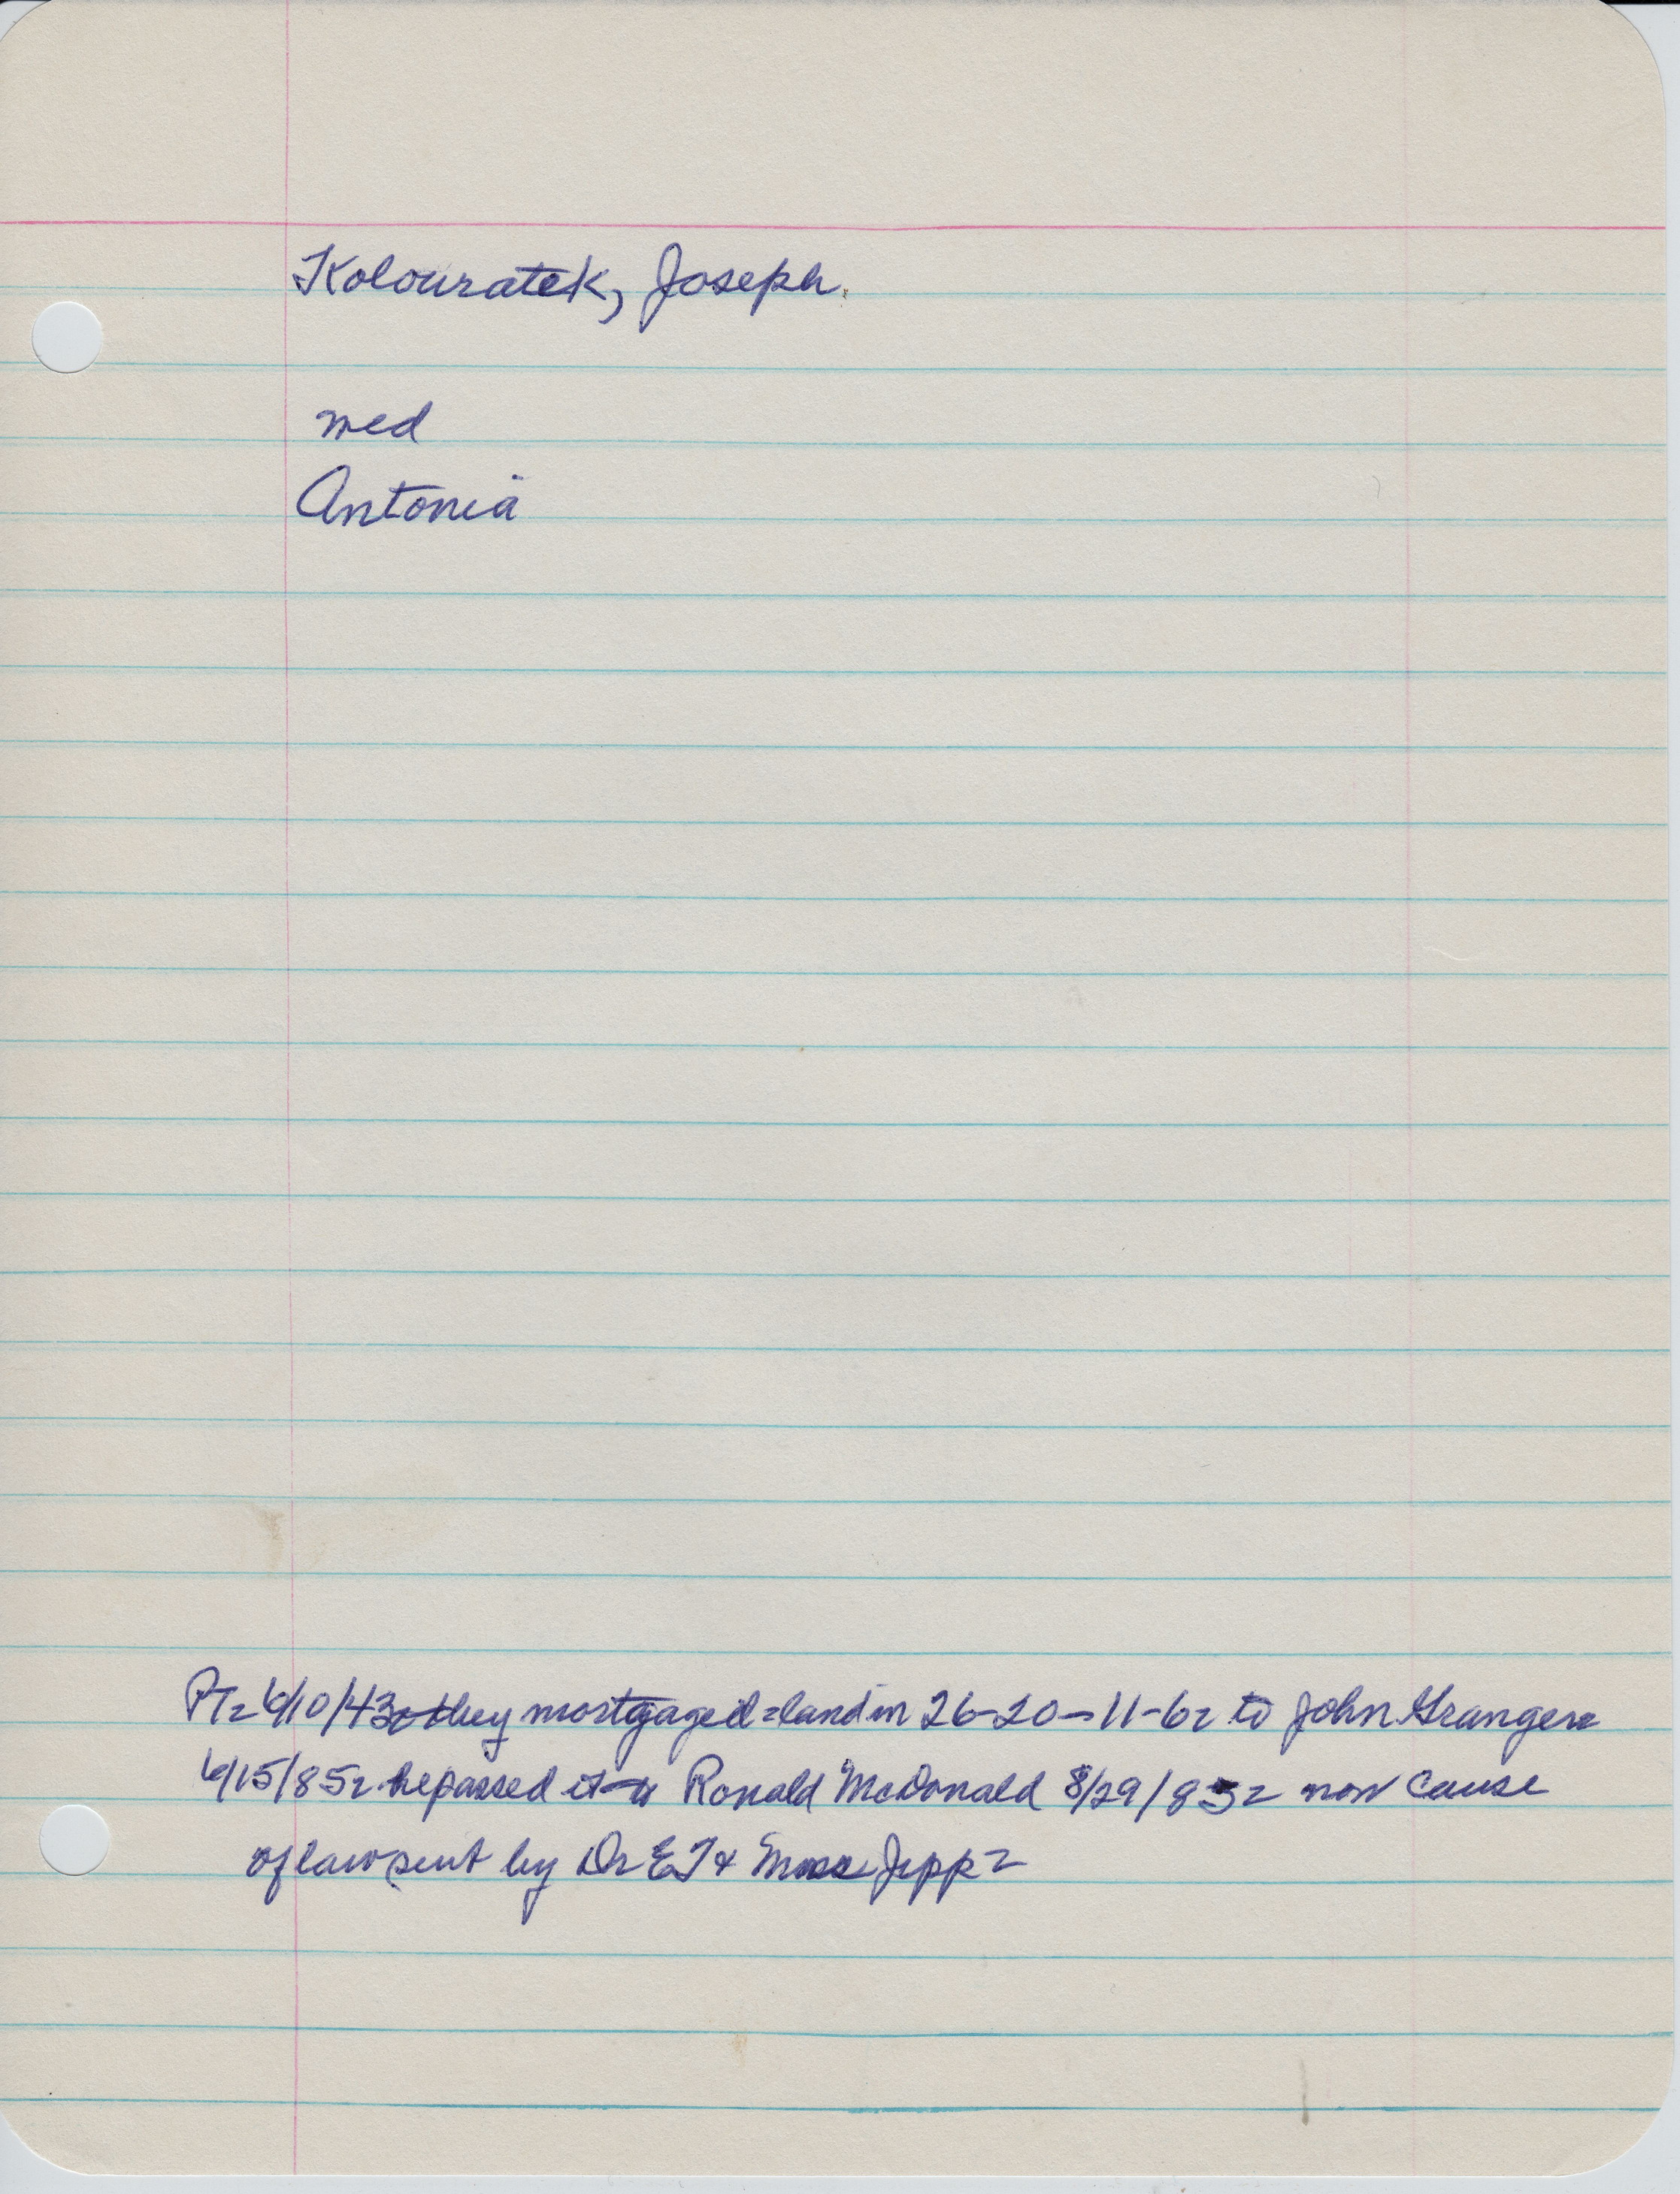 Kolouratek, Joseph.
med
Antonia
PT= 6/10/43= they mortgaged = land in 26-20-11-6= to John Granger=
6/15/85= he passed it to Ronald McDonald 8/29/85= now cause
of law suit by Dr E J & Jepp=